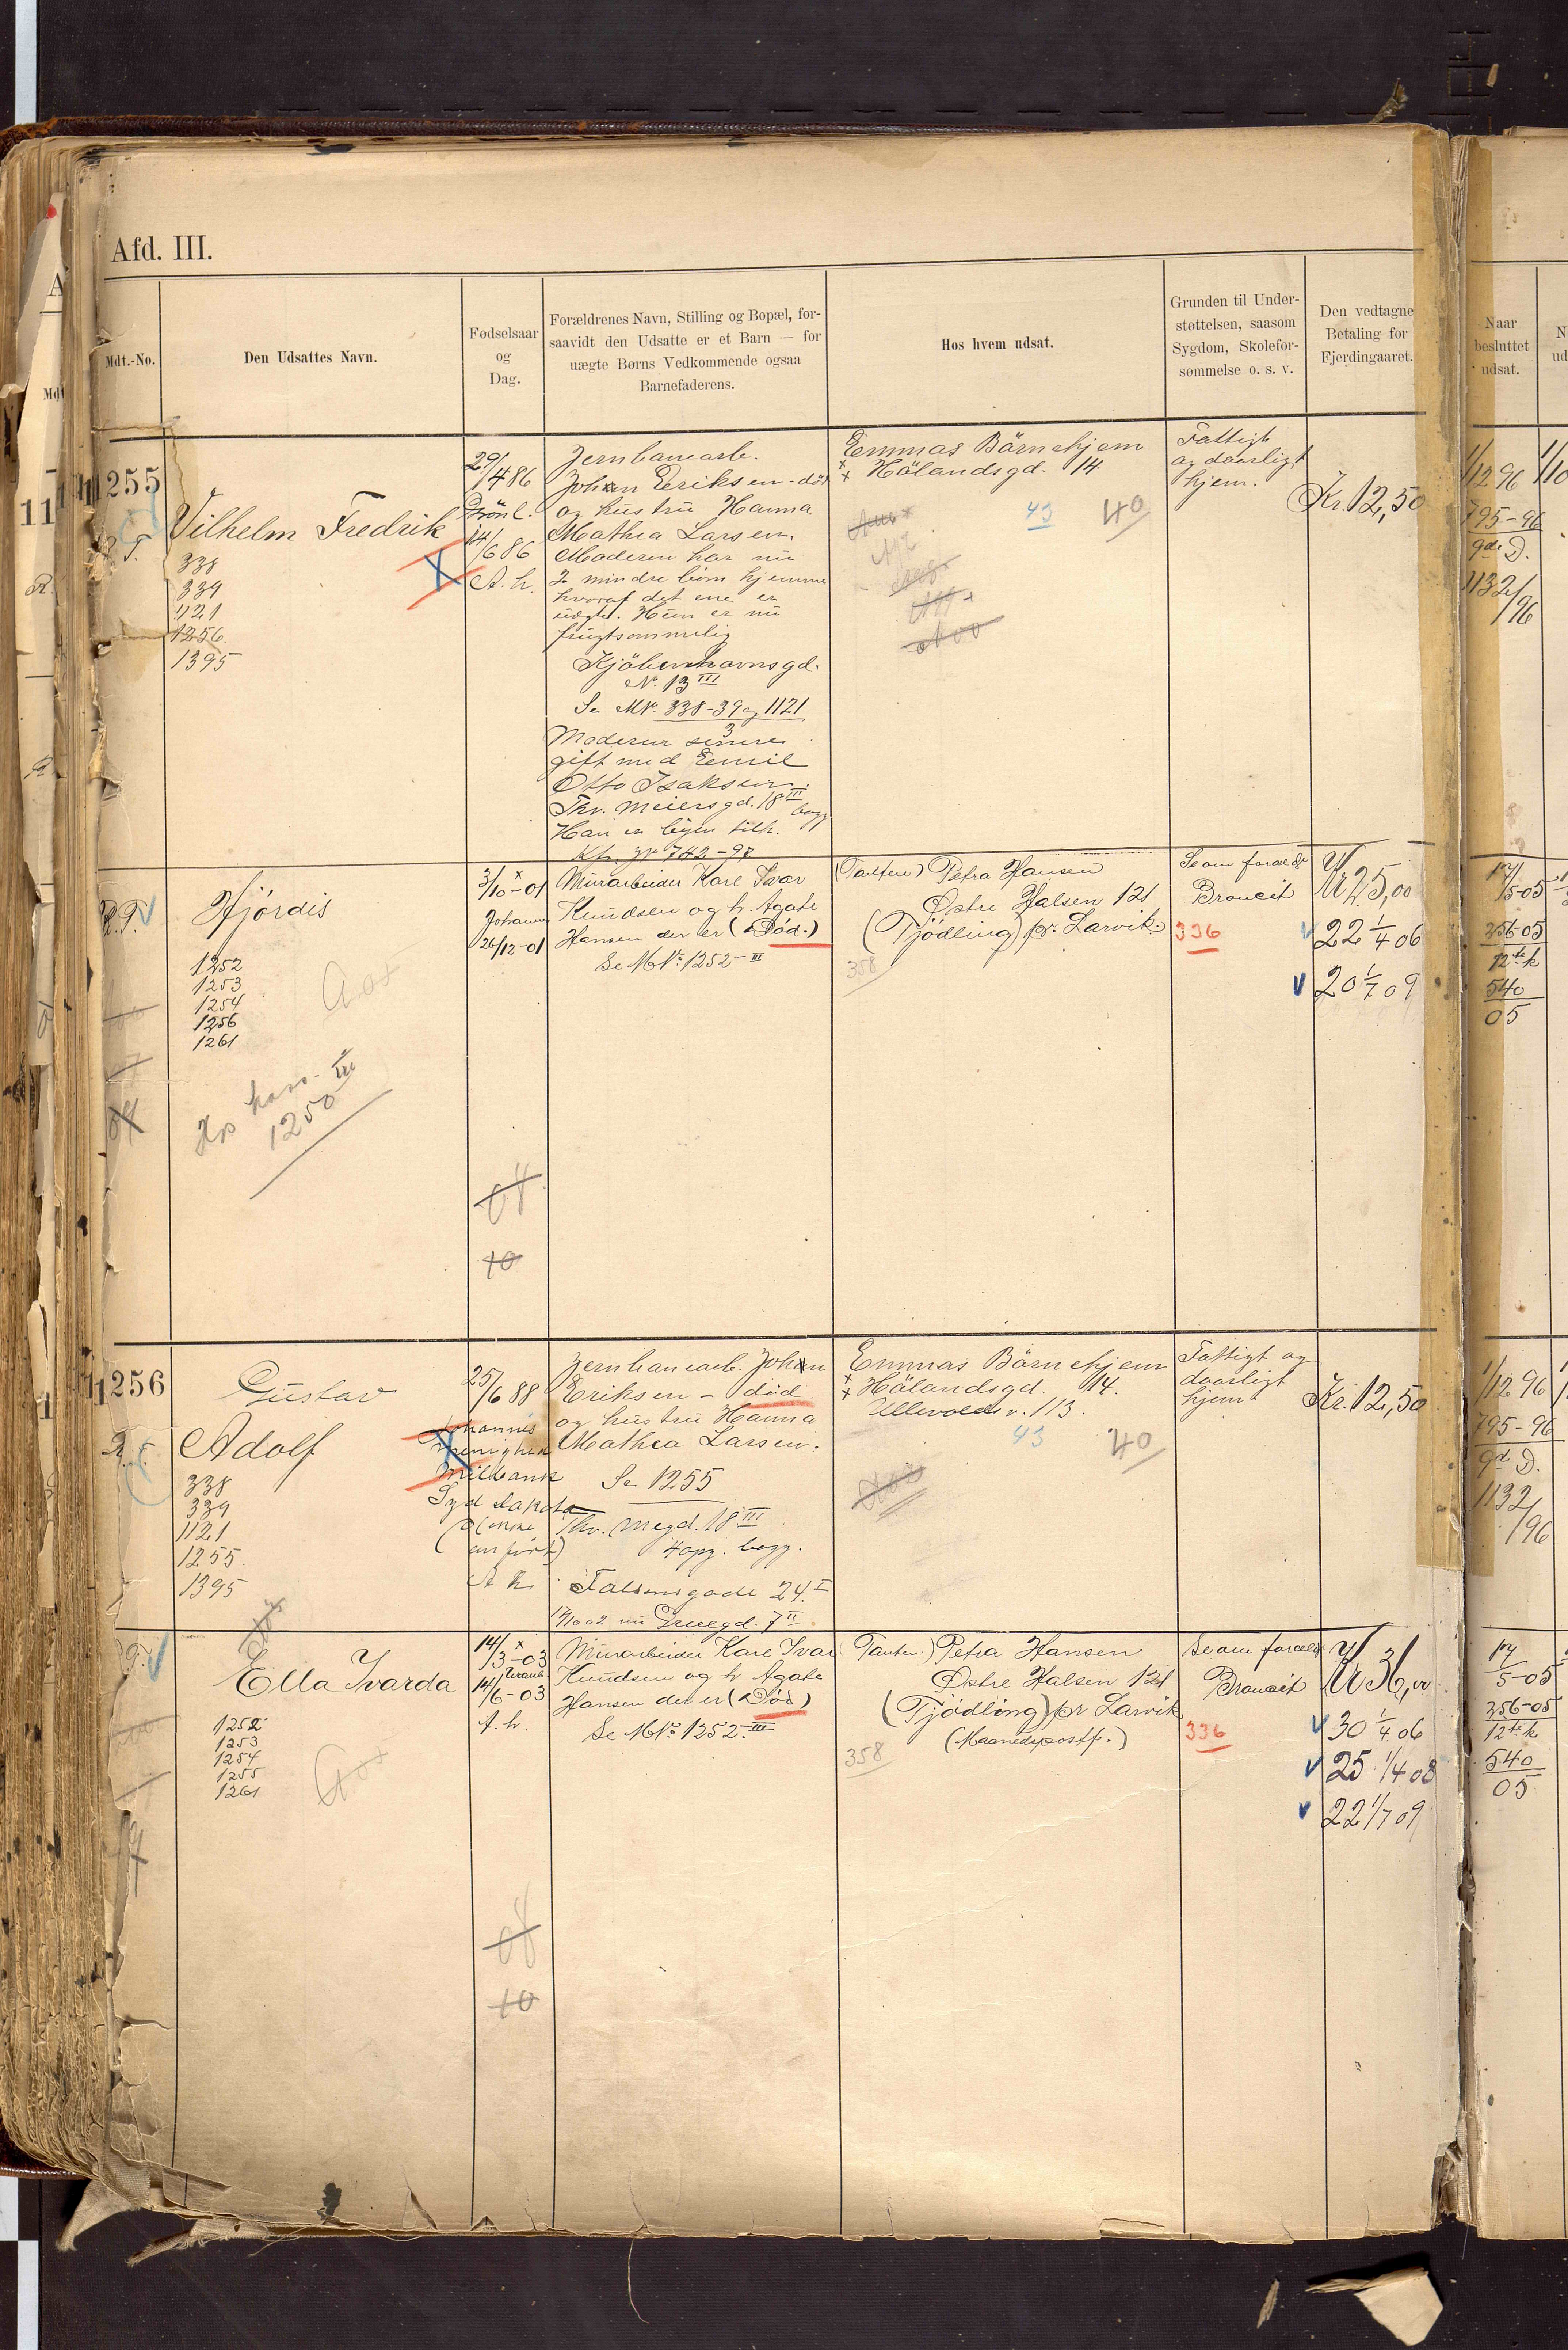 Afd. III.
Mdt.-No.
Den Udsattes Navn.
Fødselsaar
og
Dag.
Forældrenes Navn, Stilling og Bopæl, for-
saavidt den Udsatte er et Barn — for
uægte Børns Vedkommende ogsaa
Barnefaderens.
Hos hvem udsat.
Grunden til Under-
støttelsen, saasom
Sygdom, Skolefor-
sømmelse o. s. v.
Den vedtagne
Betaling for
Fjerdingaaret.
Naar
besluttet
udsat.
1255
Vilhelm Fredrik
338
339
1121
1256
1395
29/4 86
Grönl.
14/6 86
A. h.
Jernbanearb.
Johan Eriksen - död
og hustru Hanna
Mathea Larsen.
Moderen har nu
2 mindre börn hjemme
hvoraf det ene er
uægte. Hun er nu
frugtsommelig
Kjöbenhavnsgd.
No. 13 III
Se MNo. 338-39 og 1121
Moderen senere
gift med Emil
Otto Isaksen.
Thv. Meiersgd. 18 III
Han er byen tilh.
742-97
Emmas Börnehjem
Hölandsgd. 14
43 40
Fattigt
og daarligt
hjem.
Kr. 12,50
1/12 96
795-96
9de D.
1132/96
Hjórdis
1252
1253
1254
1256
1261
1250 III
3/10-01
Johannes
26/12-01
Murarbeider Karl Ivar
Knudsen og h. Agate
Hansen der er (Død.)
Se MNo. 1252 III
(Tanten) Petra Hansen
Østre Halsen 121
(Tjódling) pr. Larvik.
358
336
Kr 25,00
22 1/4 06
20 1/7 09
17/5-05
256-05
12te k
540
05
04
10
1256
Gustav
Adolf
338
339
1121
1255.
1395
25/6 88
Johannes
menighed
Milbank
Syd Dakota
A h
Jernbanearb. Johan
Eriksen - död
og hustru Hanna
Mathea Larsen.
Se 1255
Thv. Megd. 18 III
4 opg. bagg.
Falsensgade 24. I
nu Gruegd. 7 II
Emmas Börnehjem
Hölandsgd. 14.
Ullevoldsv. 113.
43 40
Fattigt og
daarligt
hjem
Kr. 12,50
1/12 96
795-96
9de D.
1132/96
Ella Ivarda
1252
1253
1254
1255
1261
14/3-03
14/6-03
A. h.
Murarbeider Karl Ivar
Knudsen og h Agate
Hansen der er (Død)
Se MNo. 1252. III
(Tanten) Petra Hansen
Østre Halsen 121
(Tjódling) pr Larvik
(Maanedspostf.)
358
336
Kr 36,00
30 1/4 06
25 1/4 08
22 1/7 09
17/5-05
256-05
12te k
540
05
08
10